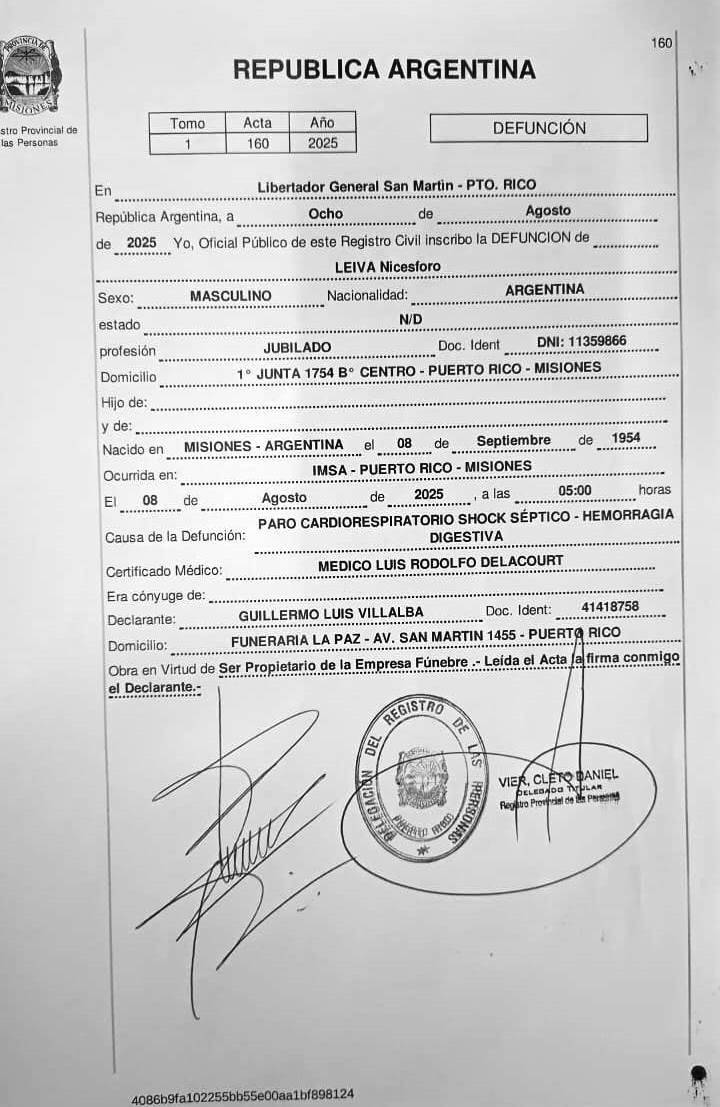 160
PROVINCIA DE
MISIONES
stro Provincial de
las Personas
REPUBLICA ARGENTINA
Tomo Acta Año
1 160 2025
DEFUNCIÓN
En Libertador General San Martin - PTO. RICO
República Argentina, a Ocho de Agosto
de 2025 Yo, Oficial Público de este Registro Civil inscribo la DEFUNCION de
LEIVA Nicesforo
Sexo: MASCULINO Nacionalidad: ARGENTINA
estado N/D
profesión JUBILADO Doc. Ident DNI: 11359866
Domicilio 1° JUNTA 1754 B° CENTRO - PUERTO RICO - MISIONES
Hijo de:
y de:
Nacido en MISIONES - ARGENTINA el 08 de Septiembre de 1954
Ocurrida en: IMSA - PUERTO RICO - MISIONES
El 08 de Agosto de 2025 , a las 05:00 horas
Causa de la Defunción: PARO CARDIORESPIRATORIO SHOCK SÉPTICO - HEMORRAGIA
DIGESTIVA
Certificado Médico: MEDICO LUIS RODOLFO DELACOURT
Era cónyuge de:
Declarante: GUILLERMO LUIS VILLALBA Doc. Ident: 41418758
Domicilio: FUNERARIA LA PAZ - AV. SAN MARTIN 1455 - PUERTO RICO
Obra en Virtud de Ser Propietario de la Empresa Fúnebre .- Leída el Acta la firma conmigo
el Declarante.-
DELEGACION DEL REGISTRO DE LAS PERSONAS
PUERTO RICO
VIER, CLETO DANIEL
DELEGADO TITULAR
Registro Provincial de las Personas
4086b9fa102255bb55e00aa1bf898124